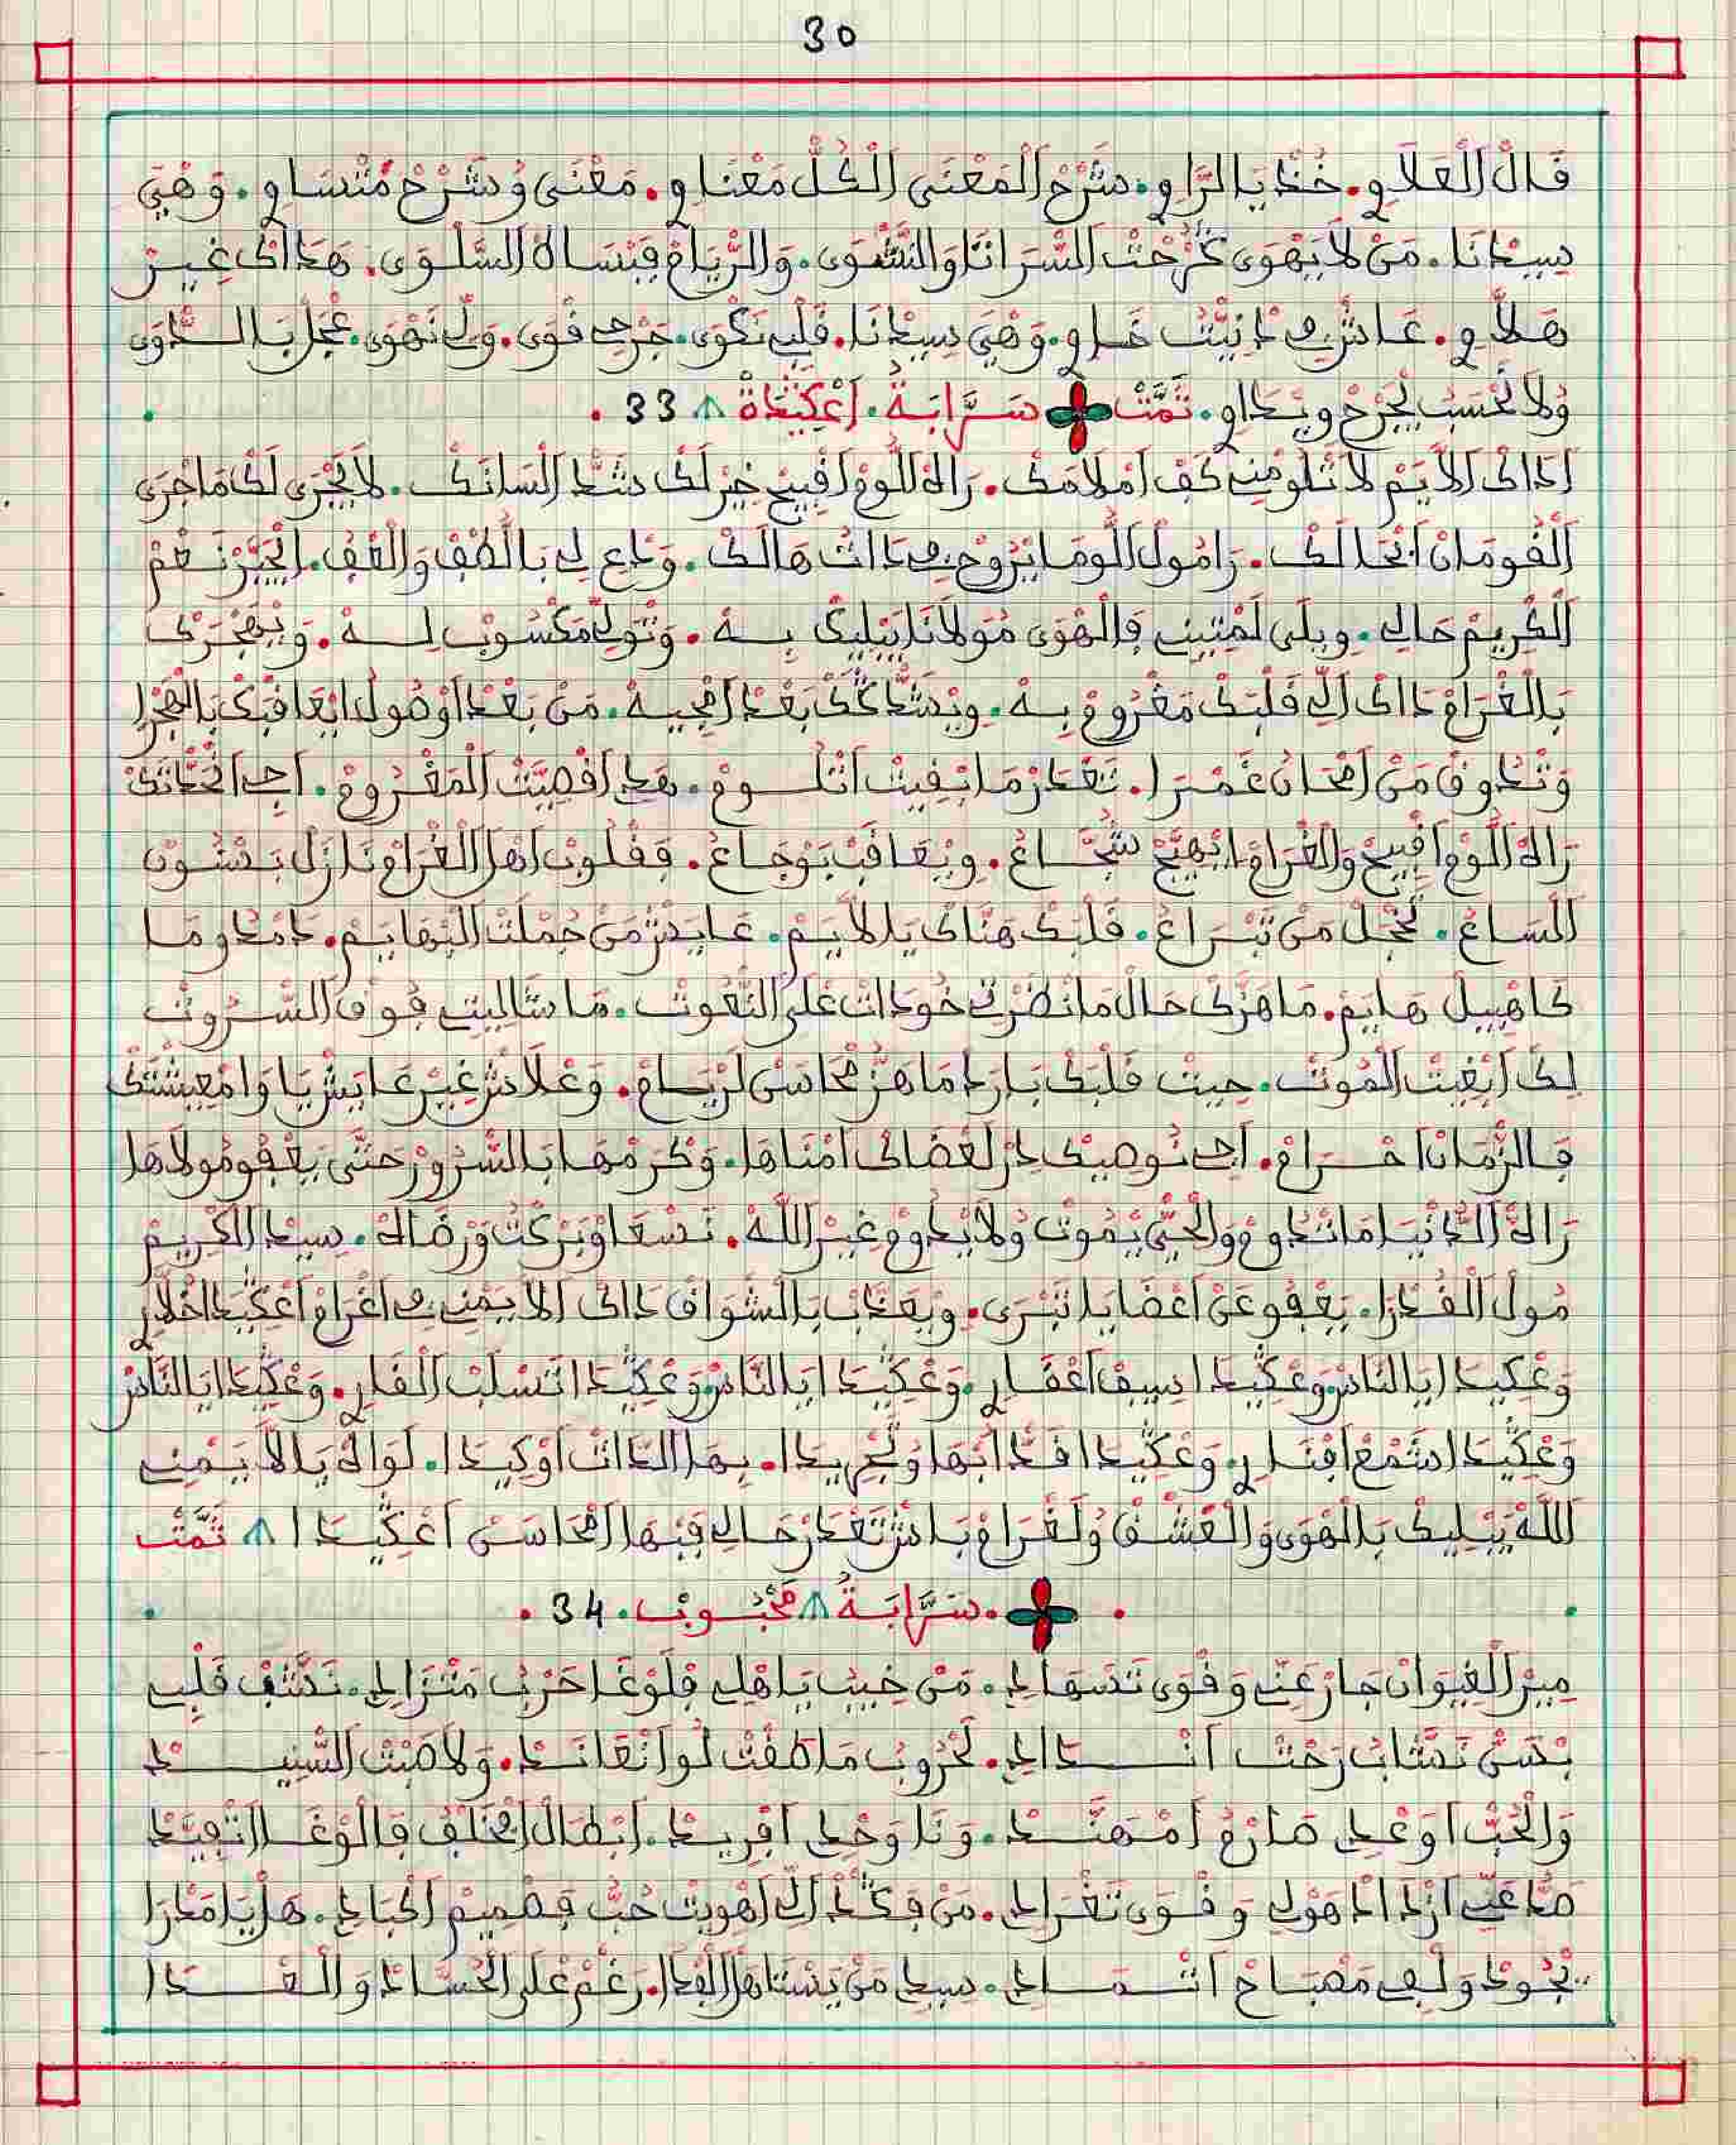 30
فَالْ اَلْعَلاَوِي. خُذْ يَا الرَّاوِي. شَرْحْ اَلْمَعْنَى اَلْكُلّْ مَعْنَاوِي. مَعْنَى وُشَرْحْ مُتْسَاوِي. وَهْيَ
سِيدْنَا. مَنْ لاَ يَهْوَى وَالنَّشْوَى. وَالرّْيَامْ فِبْسَاطْ اَلسَّلْوَى. هَذَاكْ غِيرْ
هَلاَّوِي. عَاشْ فِي دَنْيْتُ خَاوِي. وَهْيَ سِيدْنَا. قَلْبِي نَكْوَى. جَرْحِي قْوَى. وَلِّي نَهْوَى. عْجَلْ بَالدّْوَى
وُلاَ تَحْسَبْ لَجْرَحْ وِيدَاوِي. تَمَّتْ سَرَّابَةُ. اَعْكِيدَةْ 33.
اَدَاكْ اَلاَّيَمْ لاَ تْلُومْنِي كَفّْ اَمْلاَمَكْ. رَاهْ اَللُّومْ اَقْبِيحْ خِيرْ لَكْ شَدّْ اَلْسَانَكْ. لاَ يَجْرَى لَكْ مَا جْرَى
اَلْقُومَانْ لَكْ. رَامُولْ اَللُّومَا يْرُوحْ فِي دَاتْ هَالَكْ. وَدَاعِ لِي بَاللُّطْفْ وَالْعْفُ. نَعْمْ
اَلْكْرِيمْ حَالِي. وِيلَى لَمْتِينِي فَالْهْوَى مُولاَنَا يَبْلِيكْ بِه. وَتْوَلِّي مَكْسُوبْ لِه. وَيْهَجْرَكْ
بَالْغْرَامْ دَاكْ اَلِّي قَلْبَكْ مَغْرُومْ بِهْ. وِيْشَدّْ بَعْدْ اَمْجِيهْ. مَنْ بَعْدْ اَوْصُولْ اِيعَاقْبَكْ بَالْهَجْرَا
وَتْدُوقْ مَنْ اَمْحَانْ غَمْرَا. تَعْدَرْ مَا بْقِيتْ اَتْلُومْ. هَذِ اَقْصِيَّتْ اَلْمَغْرُومْ. اَجِي
رَاهْ اَللُّومْ اَقْبِيحْ وَالْغْرَامْ اِيْهَيَّجْ شَجَّاعْ. وِيْعَاقَبْ بَوْجَاعْ. فَقْلُوبْ اَهْلْ اَلْغْرَامْ نَازَلْ بَسْيُوفْ
اَلْسَاعْ. عَجَّلْ مَنْ تَبْرَاعْ. قَلْبَكْ هَنَّاكْ يَا لاَيَمْ. عَايَشْ مَنْ جُمْلَتْ اَلْبْهَايَمْ. دَمْدُومَا
كَاهْبِيلْ هَايَمْ. مَا هَزَّكْ حَالْ مَا نْضَرْتِي خُودَاتْ عْلَى النّْعُوتْ. مَا شَالِيتِي فُوقْ اَلسّْرُوتْ
لِكْ اَبْغِيتْ اَلْمُوتْ. جِيتْ قَلْبَكْ بَارَدْ مَا هَزّْ مْحَاسَنْ لَرْيَامْ. وَعْلاَشْ غِيرْ عَايَشْ يَا وَامْعِيشْتَكْ
فَالزّْمَانْ اَحْرَامْ. اَجِي نُوصِيكْ دِرْ لَعْضَاكْ اَمْنَاهَا. وَكْرَمْهَا بَالسّْرُورْ حَتَّى يَعْفُو مُولاَهَا
رَاهْ اَلدَّنْيَا مَا تْدُومْ وَالْحَيّْ يْمُوتْ وُلاَ يْدُومْ غِيرْ اَللَّهْ. نَسْعَاوْ بَرْكْتُ وَرْضَاهْ. سِيدْ اَلْكْرِيمْ
مُولْ اَلْقُدْرَا. يَعْفُو عَنْ اَعْضَايَا تَبْرَى. وِيْعَدَّبْ بَالشّْوَاقْ دَاكْ اَلاَّيَمْنِي فِي اَغْرَامْ اَعْكِيدَا
وَعْكِيدَا يَا النَّاسْ وَعْكِيدَا سِيفْ اَعْقَارِي. وَعْكِيدَا يَا النَّاسْ وَعْكِيدَا تَسْلَبْ اَلْقَارِي. وَعْكِيدَا يَا النَّاسْ
وَعْكِيدَا شَمْعْ اَفْنَارِي. وَعْكِيدَا قَدّْ اَبْهَا وُ. بِهَا الدَّاتْ اَوْكِيدَا. لَوَاهْ يَا لاَيَمْنِي
اَللَّهْ يَبْلِيكْ بَالْهْوَى وَالْعَشْقْ وُلَغْرَامْ بَاشْ تَعْدَرْ حَالِي فِبْهَا اَمْحَاسَنْ اَعْكِيدَا تَمَّتْ
. سَرَّابَةُ مَحْبُوبْ. 34.
مِيرْ اَلْغِيوَانْ جَارْ عَنِّي وَقْوَى تَسْهَادِي. مَنْ خِيبْ يَا هْلِي فَلَوْغَا حَرْبُ مَتْزَادِي. نَشَّفْ قَلْبِي
بْحَسّْ نَشَّابُ رَحْتْ اَنْدَادِي. لَحْرُوبْ مَا طَقْتْ لُو اَنْعَانَدْ. وَلاَ صَبْتْ اَلسّْنِيدْ
وَالْحُبّْ اَوْعْدِي صَارْمُ اَمْهَنَّدْ. وَنَا وَحْدِي اَفْرِيدْ. اَبْطَالْ فَالْوْغَا اَتْقِيَّدْ
صَدّْ عْلِيَّ اَزْنَادْ هَوْلِي وَقْوَى تَغْرَادِي. مَنْ فَكْدْ اَلِّي اَهْوِيتْ حُبُّ فَصْمِيمْ اَكْبَادِي. هَلْ يَا مَدْرَا
يْجُودْ وَلْفِي مَصْبَاحْ اَتْمَادِي. سِيدِي مَنْ يَسْتَاهَلْ اَلْفْدَا. رَغْمْ عْلَى اَلْحُسَّادْ وَالْعْدَا